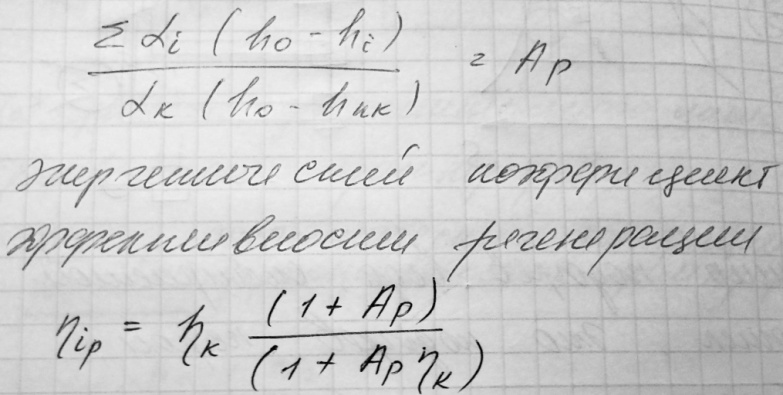 Σαi (h0 - hi) / αк (h0 - hпк) = Aр
энергетический коэффициент
эффективности регенерации
ηiр = ηк (1 + Aр) / (1 + Aр ηк)